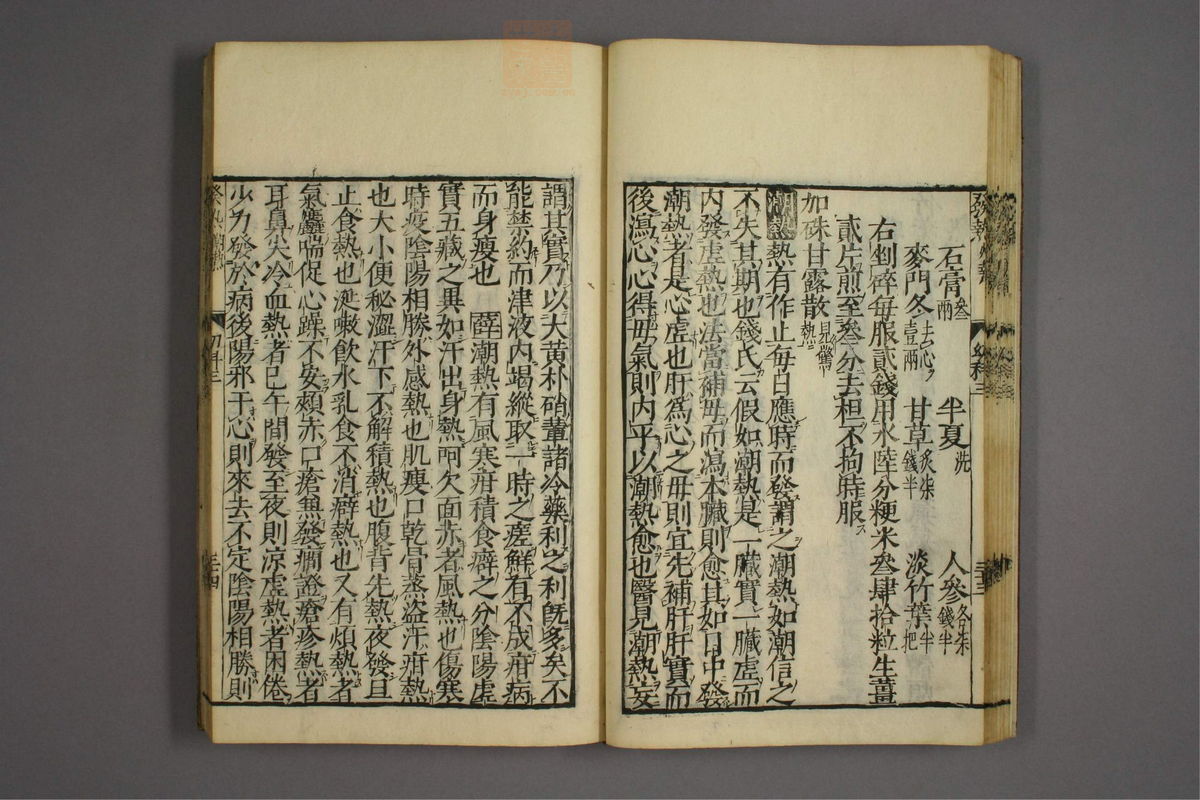 發熱
石膏叁兩　半夏洗　人參各朱錢半
麥門冬去心壹兩　甘草炙朱錢半　淡竹葉半把
右剉碎每服貳錢用水陸分粳米叁肆拾粒生薑
貳片煎至叁分去柤不拘時服
加硃甘露散見驚熱
潮熱熱有作止每日應時而發謂之潮熱如潮信之
不失其期也錢氏云假如潮熱是一臟實一臟虛而
內發虛熱也法當補母而瀉本臟則愈其如日中發
潮熱者是心虛也肝爲心之母則宜先補肝肝實而
後瀉心心得母氣則內平以潮熱愈也醫見潮熱妄
謂其實乃以大黃朴硝輩諸冷藥利之利旣多矣不
能禁約而津液內竭縱取一時之瘥鮮有不成疳病
而身瘦也　薛潮熱有風寒疳積食癖之分陰陽虛
實五藏之異如汗出身熱呵欠面赤者風熱也傷寒
時疫陰陽相勝外感熱也肌瘦口乾骨蒸盗汗疳熱
也大小便秘澀汗下不解積熱也腹背先熱夜發旦
止食熱也涎嗽飲水乳食不消癖熱也又有煩熱者
氣麤喘促心躁不安頰赤口瘡無發癇證瘡疹熱者
耳鼻尖冷血熱者巳午間發至夜則涼虛熱者困倦
少力發於病後陽邪干心則來去不定陰陽相勝則
三四